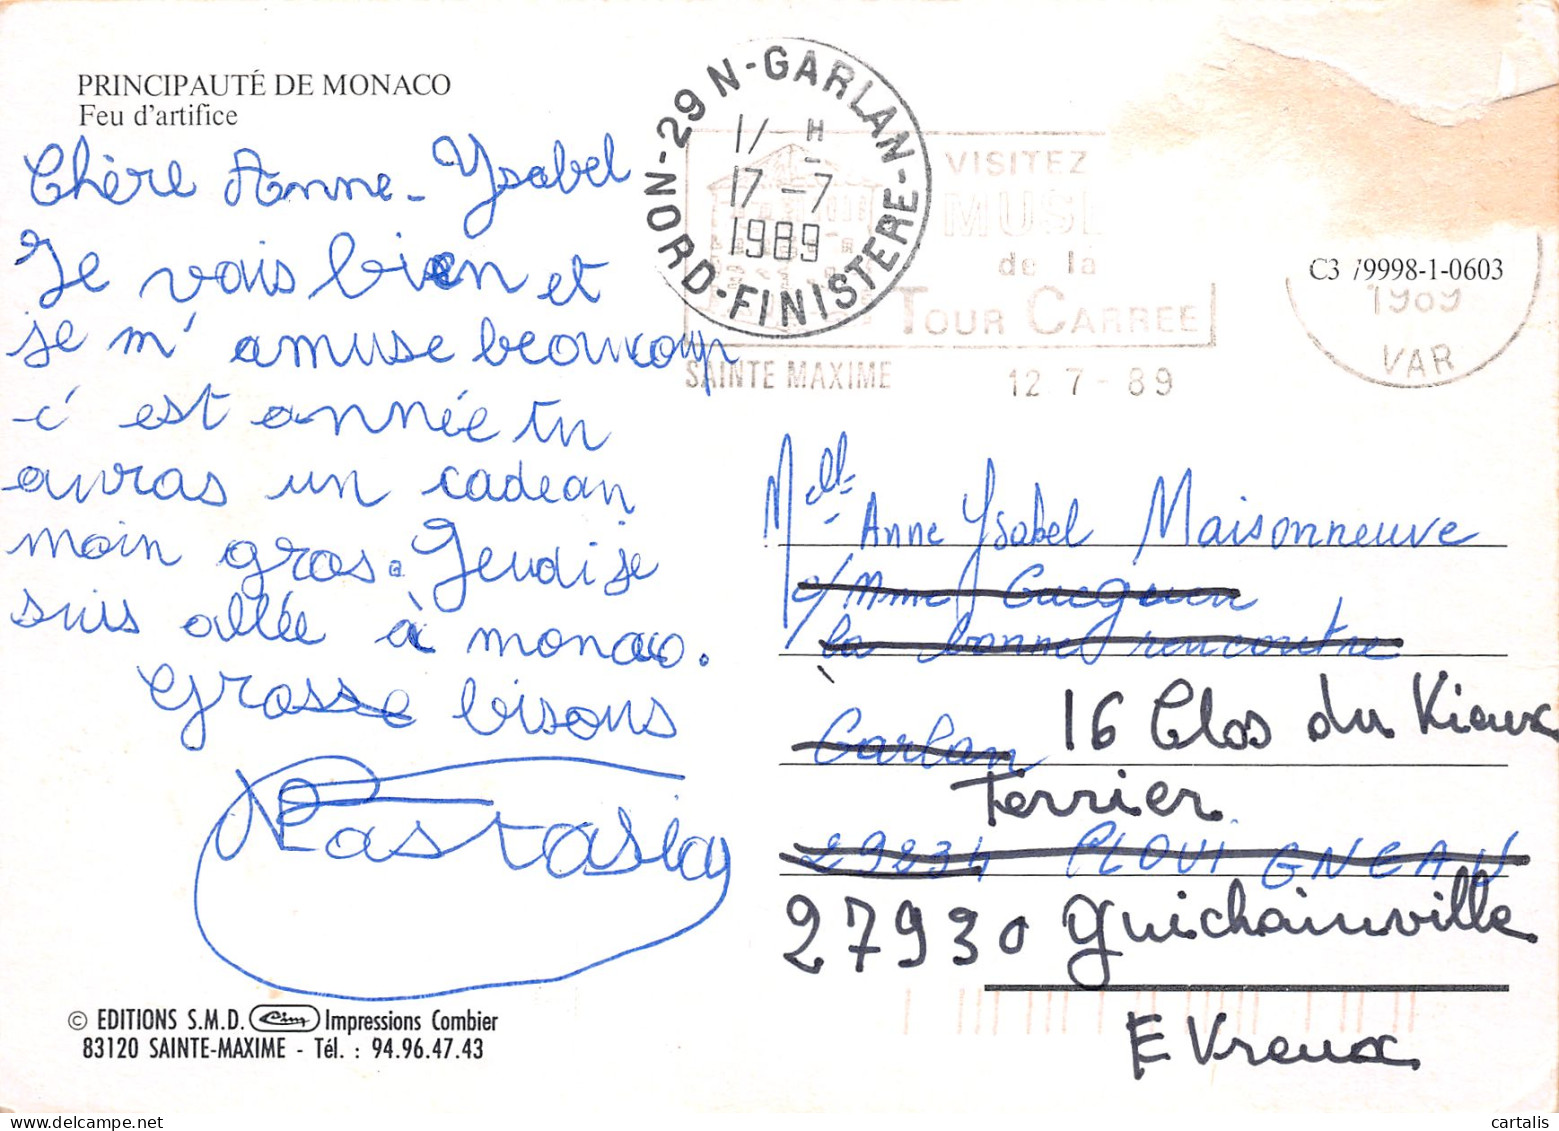 PRINCIPAUTÉ DE MONACO
Feu d'artifice
Chère Anne-Ysabel
Je vais bien et
je m'amuse beaucoup
c'est année tu
auras un cadeau
moin gros. Jeudi je
suis allée à monaco.
Grosse bisous
© EDITIONS S.M.D. Cim Impressions Combier
83120 SAINTE-MAXIME - Tél. : 94.96.47.43
29 N-GARLAN-
NORD-FINISTERE
17 H
17-7
1989
VISITEZ
de la
TOUR CARREE
SAINTE MAXIME
12 7-89
C3 /9998-1-0603
1989
VAR
Melle Anne Ysabel Maisonneuve
c/ Mme
la bonne rencontre
Garlan 16 Clos du Vieux
Terrier
29234 PLOUIGNEAU
27930 Guichainville
EVreux
cartalis